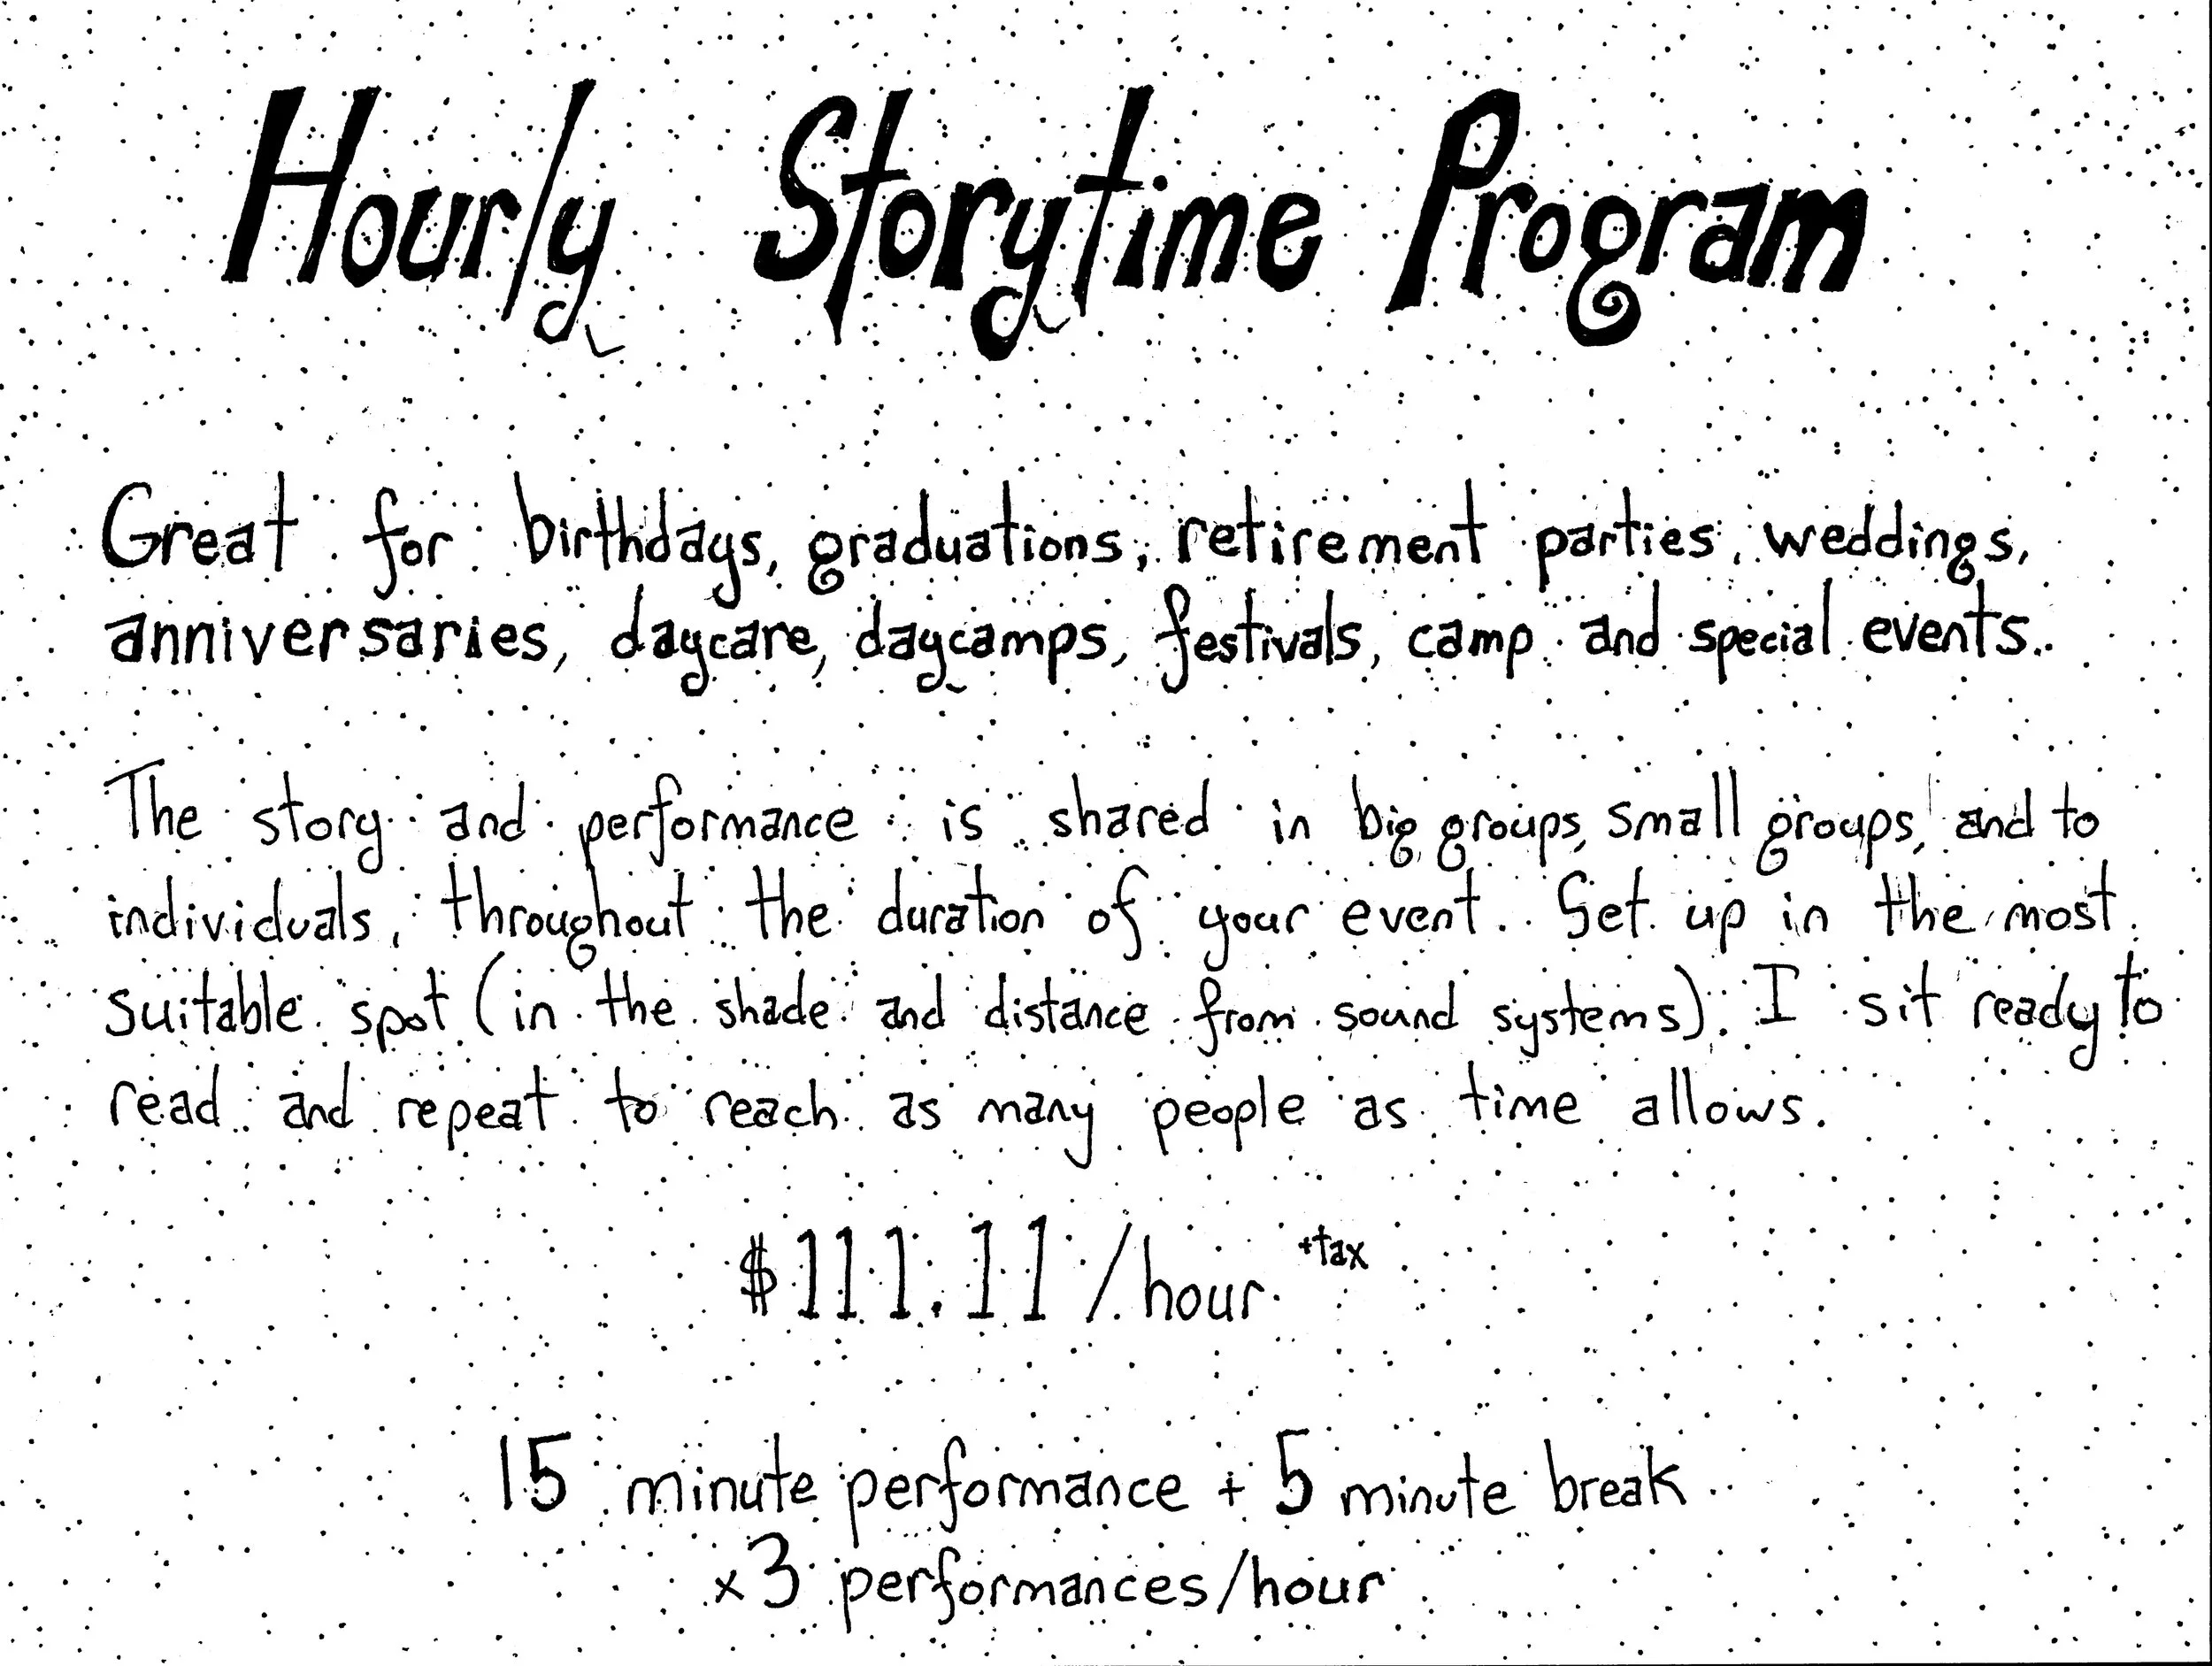 Hourly Storytime Program
Great for birthdays, graduations, retirement parties, weddings,
anniversaries, daycare, daycamps, festivals, camp and special events.
The story and performance is shared in big groups, small groups, and to
individuals, throughout the duration of your event. Set up in the most
suitable spot (in the shade and distance from sound systems). I sit ready to
read and repeat to reach as many people as time allows.
$111.11/hour +tax
15 minute performance + 5 minute break
x3 performances/hour